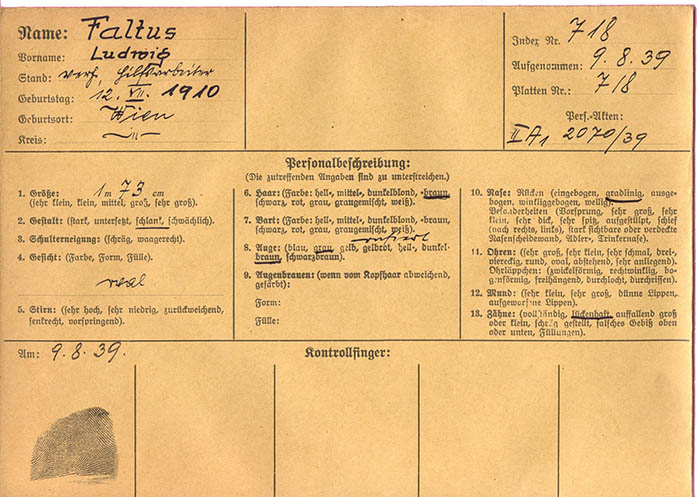 Name: Faltus
Vorname: Ludwig
Stand: verh. Hilfsarbeiter
Geburtstag: 12. VII. 1910
Geburtsort: Wien
Kreis: — " —
Index Nr. 718
Aufgenommen: 9. 8. 39
Platten Nr.: 718
Pers.-Akten:
II A1 2070/39
Personalbeschreibung:
(Die zutreffenden Angaben sind zu unterstreichen.)
1. Größe: 1 m 73 cm
(sehr klein, klein, mittel, groß, sehr groß).
2. Gestalt: (stark, untersetzt, schlank, schwächlich).
3. Schulterneigung: (schräg, waagerecht).
4. Gesicht: (Farbe, Form, Fülle).
oval
5. Stirn: (sehr hoch, sehr niedrig, zurückweichend,
senkrecht, vorspringend).
6. Haar: (Farbe: hell-, mittel-, dunkelblond, -braun,
schwarz, rot, grau, graugemischt, weiß).
7. Bart: (Farbe: hell-, mittel-, dunkelblond, -braun,
schwarz, rot, grau, graugemischt, weiß).
rasiert
8. Auge: (blau, grau, gelb, gelbrot, hell-, dunkel-
braun, schwarzbraun).
9. Augenbrauen: (wenn vom Kopfhaar abweichend,
gefärbt):
Form:
Fülle:
10. Nase: Rücken (eingebogen, gradlinig, ausge-
bogen, winkliggebogen, wellig).
Besonderheiten (Vorsprung, sehr groß, sehr
klein, sehr dick, sehr spitz, aufgestülpt, schief
(nach rechts, links), stark sichtbare oder verdeckte
Nasenscheidewand, Adler-, Trinkernase).
11. Ohren: (sehr groß, sehr klein, sehr schmal, drei-,
viereckig, rund, oval, abstehend, sehr anliegend).
Ohrläppchen: (zwickelförmig, rechtwinklig, bo-
genförmig, freihängend, durchlocht, durchrissen).
12. Mund: (sehr klein, sehr groß, dünne Lippen,
aufgeworfene Lippen).
13. Zähne: (vollständig, lückenhaft, auffallend groß
oder klein, schräg gestellt, falsches Gebiß oben
oder unten, Füllungen).
Am: 9. 8. 39.
Kontrollfinger: